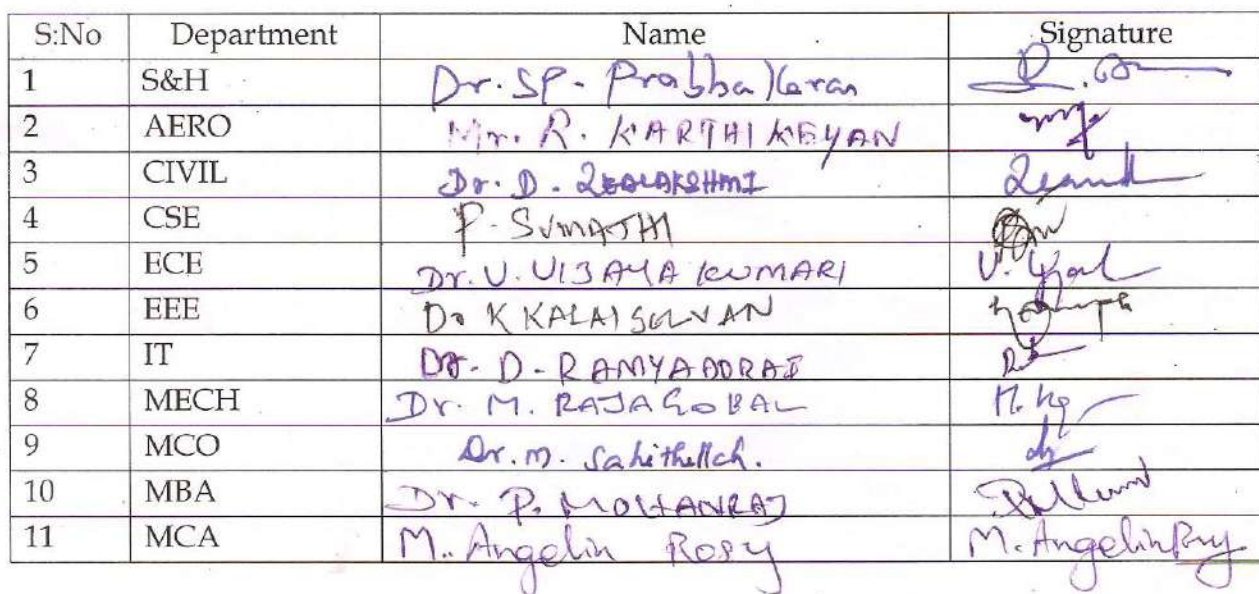 S:No Department Name Signature
1 S&H Dr. SP. Prabhakaran
2 AERO Mr. R. KARTHIKEYAN
3 CIVIL Dr. D.
4 CSE P. SUMATHI
5 ECE Dr. V. VIJAYA KUMARI V.
6 EEE Dr K KALAISELVAN
7 IT Dr. D. RAMYA DORAI
8 MECH Dr. M. RAJAGOBAL
9 MCO Dr. M.
10 MBA Dr. P. MOHANRAJ
11 MCA M. Angelin Rosy M. Angelin Rosy